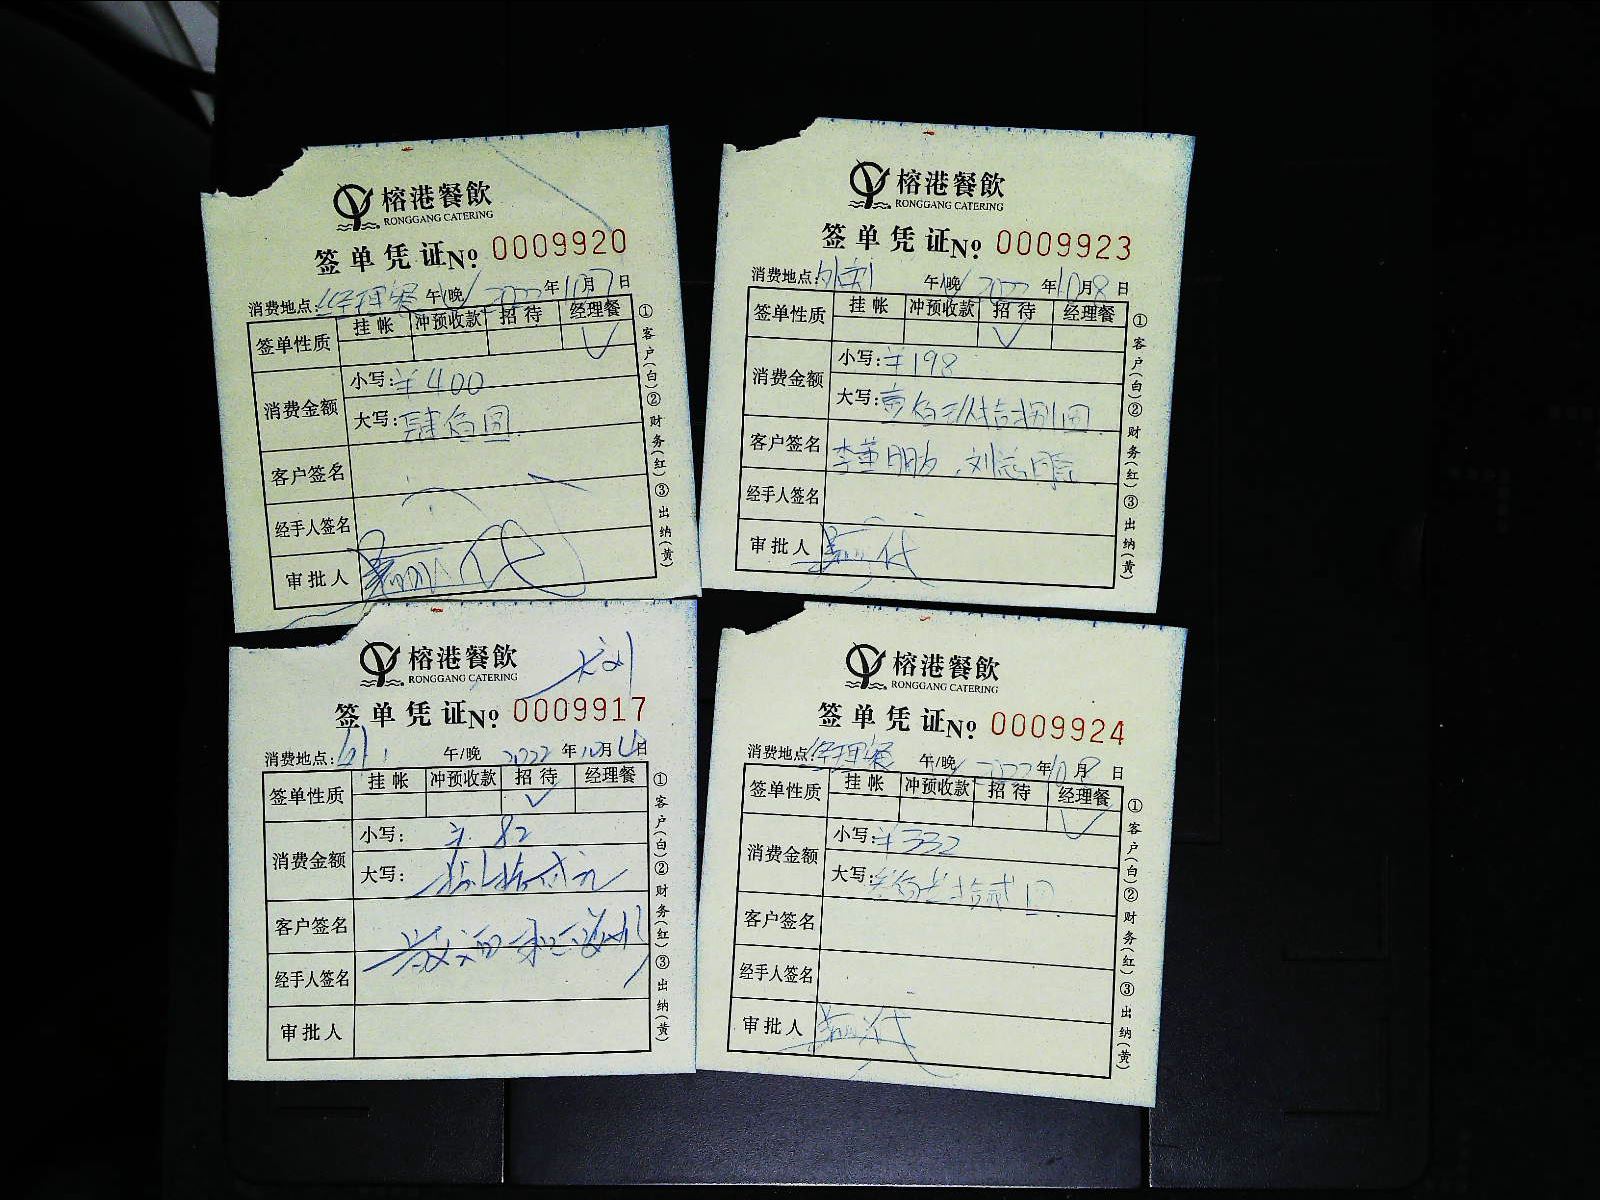 榕港餐飲
RONGGANG CATERING
签单凭证No 0009920
消费地点: 经理餐 午/晚 2022年10月7日
签单性质 挂帐 冲预收款 招待 经理餐
消费金额 小写: ¥400
大写: 肆佰圆
客户签名
经手人签名
审批人
①客户(白)②财务(红)③出纳(黄)
榕港餐飲
RONGGANG CATERING
签单凭证No 0009923
消费地点: 午/晚 2022年10月8日
签单性质 挂帐 冲预收款 招待 经理餐
消费金额 小写: ¥198
大写: 壹佰玖拾捌圆
客户签名 李董朋友、刘总
经手人签名
审批人
①客户(白)②财务(红)③出纳(黄)
榕港餐飲
RONGGANG CATERING
签单凭证No 0009917
消费地点: 午/晚 2022年10月日
签单性质 挂帐 冲预收款 招待 经理餐
消费金额 小写: ¥82
大写: 捌拾贰元
客户签名
经手人签名
审批人
①客户(白)②财务(红)③出纳(黄)
榕港餐飲
RONGGANG CATERING
签单凭证No 0009924
消费地点: 经理餐 午/晚 2022年10月8日
签单性质 挂帐 冲预收款 招待 经理餐
消费金额 小写: ¥332
大写: 叁佰叁拾贰圆
客户签名
经手人签名
审批人
①客户(白)②财务(红)③出纳(黄)